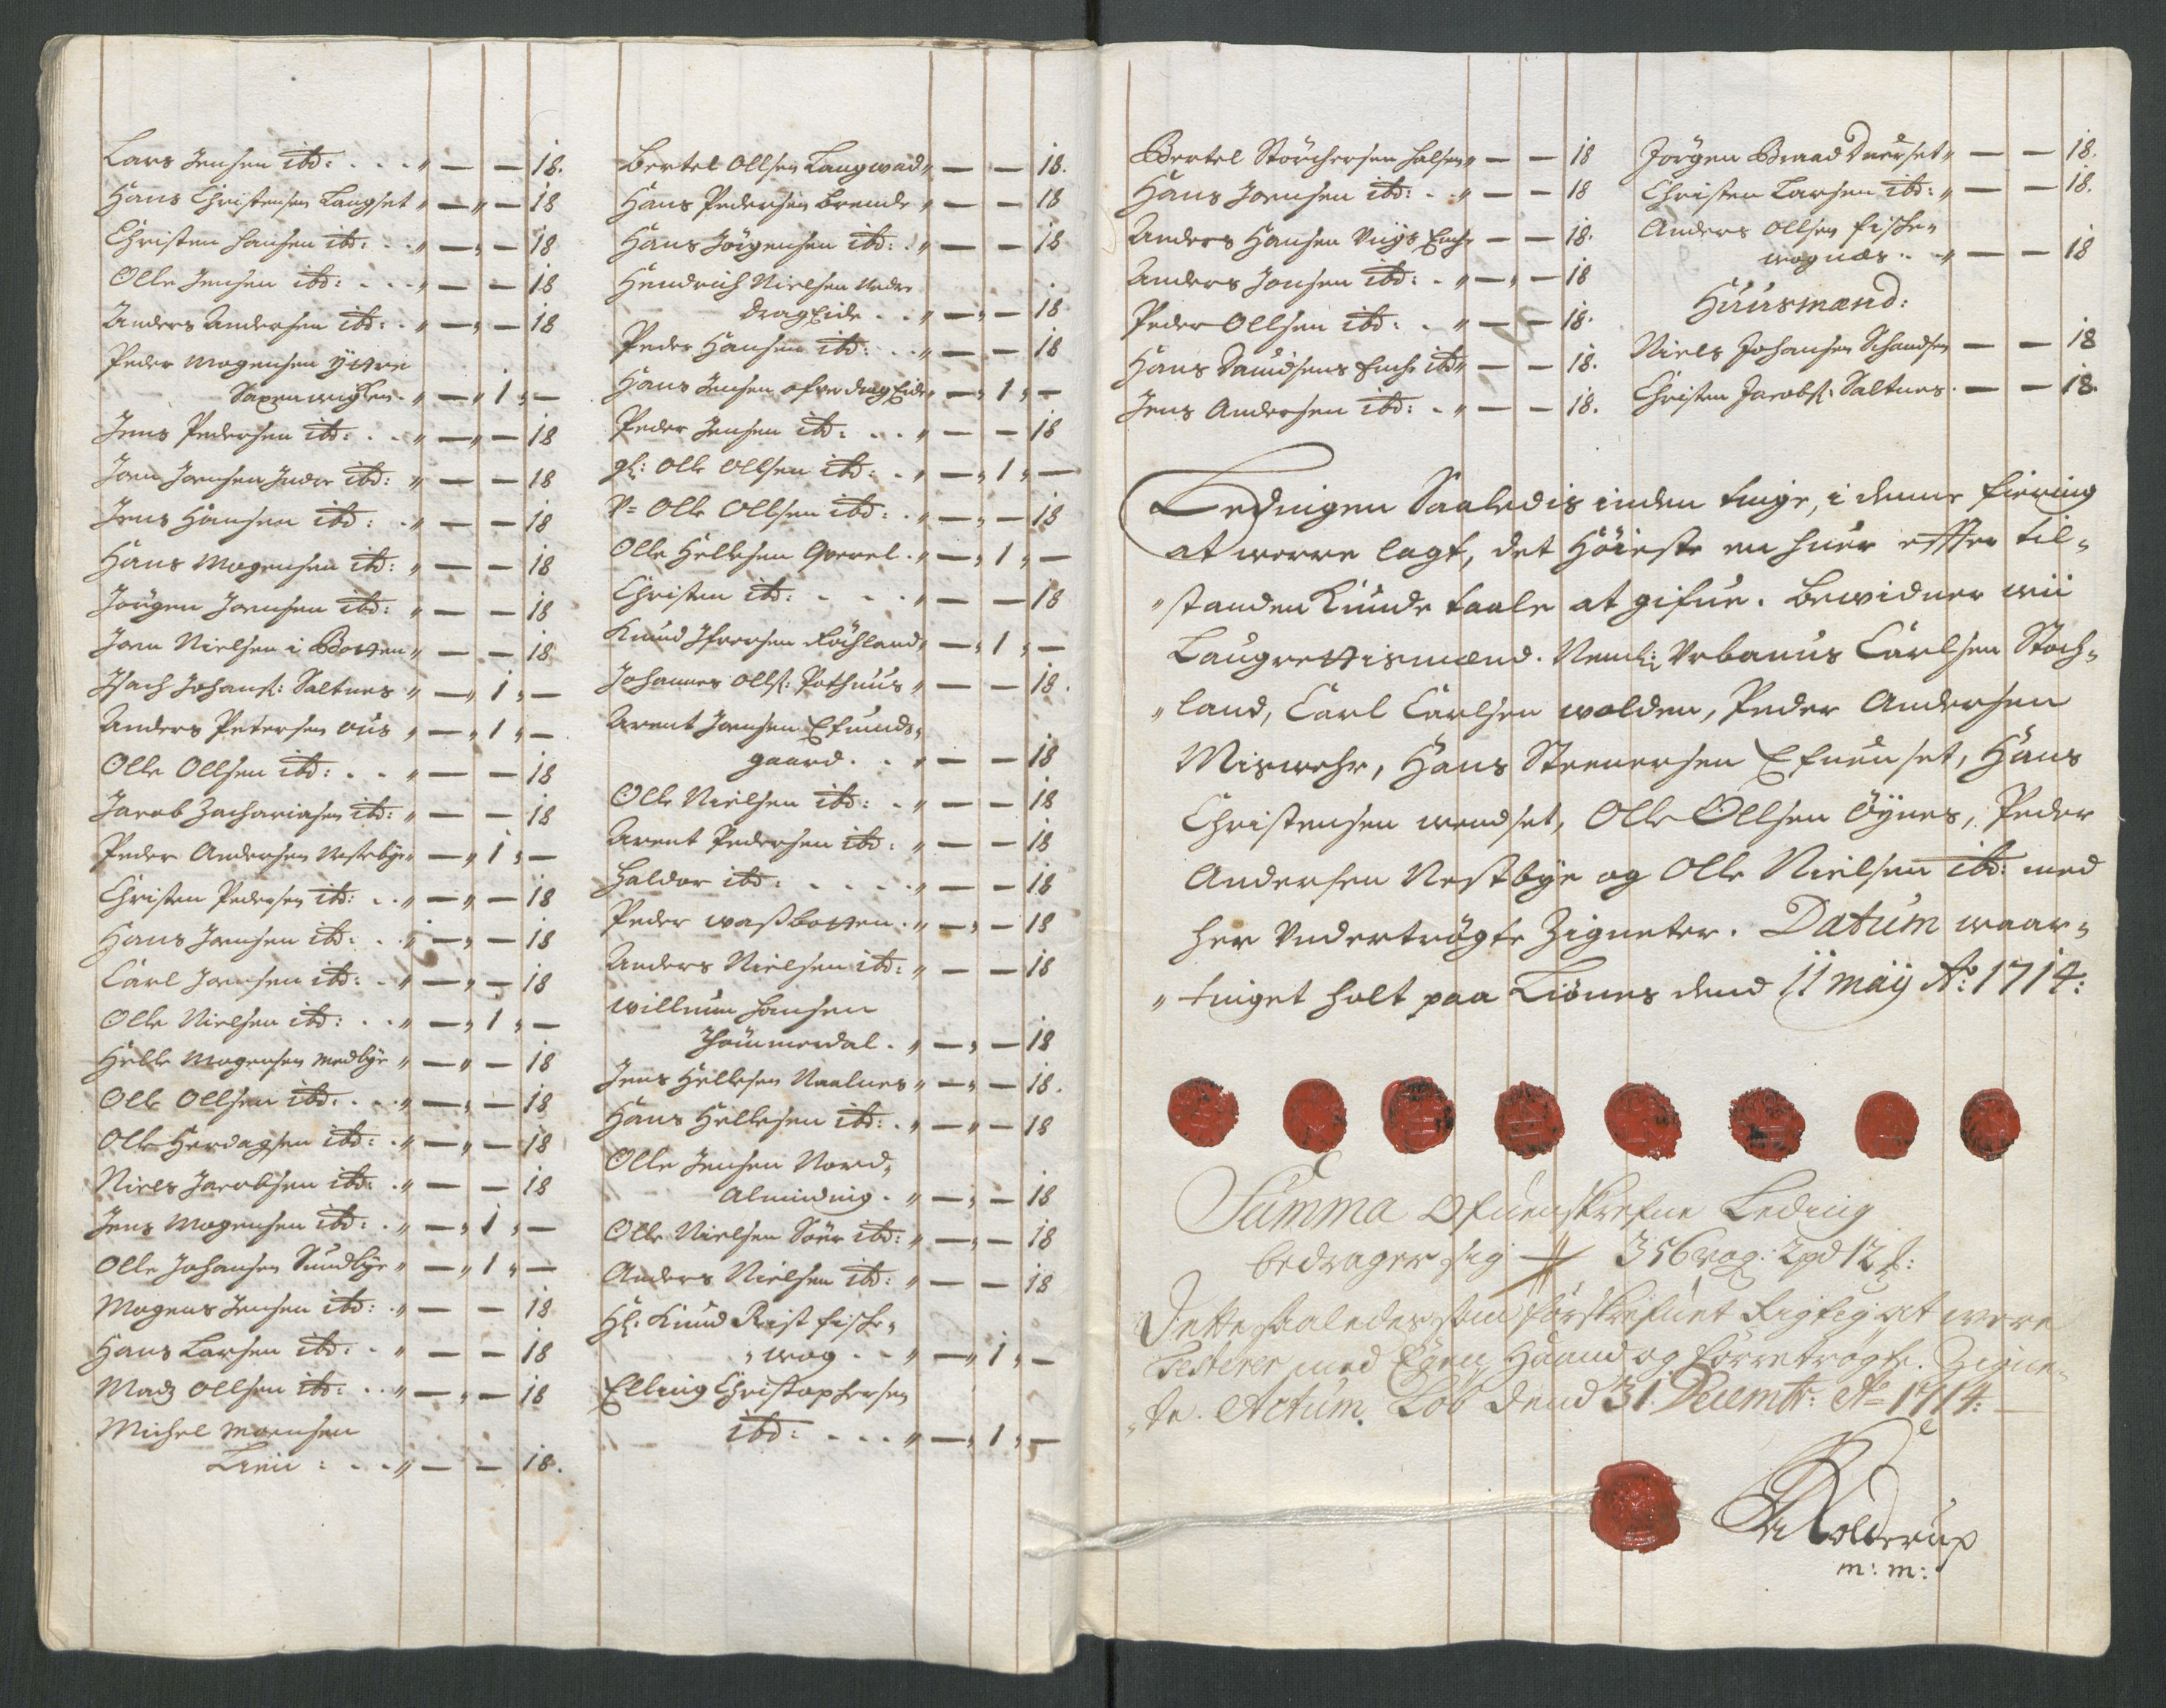 Lars Jensen ibd: . . . „ — — 18.
Hans Christensen Langset „ — „ — 18
Christen Hansen ibd: . . „ — „ — 18
Olle Jensen ibd: . . . „ — — 18
Anders Andersen ibd: . „ — „ — 18
Peder Mogensen ÿttre
Saxenwigken . „ — „ 1 „ —
Jens Pedersen ibd: . . „ — „ — 18
Joen Joensen Indre ibd: „ — — 18
Jens Hansen ibd: . „ — — 18
Hans Mogensen ibd: „ — — 18
Jørgen Joensen ibd: „ — — 18
Joen Nielsen i Botten „ — — 18
Isach Johans: Saltnes „ — „ 1 „ —
Anders Petersen Aus „ — „ 1 „ —
Olle Ollsen ibd: . . „ — — 18
Jacob Zachariasen ibd: „ — — 18
Peder Andersen Nestbye „ — „ 1 „ —
Christen Pedersen ibd: . . „ — „ — 18
Hans Joensen ibd: . . „ — „ — 18
Carl Joensen ibd: . „ — „ — 18
Olle Nielsen ibd: . . „ — „ 1 „ —
Helle Mogensen Medbye „ — „ — 18
Olle Ollsen ibd: . . „ — „ — 18
Olle Herdagsen ibd: . „ — „ — 18
Niels Jacobsen ibd: . „ — — 18
Jens Mogensen ibd: . „ — „ 1 „ —
Olle Johansen Sundbye „ — „ 1 „ —
Mogens Jensen ibd: . „ — — 18
Hans Larsen ibd: . „ — — 18
Madz Ollsen ibd: . . „ — „ — 18
Michel Moensen
Lien : . . „ — — 18.
Bertel Ollsen Langwad „ — — 18.
Hans Pedersen Bremde „ — — 18
Hans Jørgensen ibd: . „ — — 18
Hendrich Nielsen Nedre
Drageide . . „ — „ — 18
Peder Hansen ibd: . . „ — — 18
Hans Jensen ofre drageide „ — „ 1 „ —
Peder Jensen ibd: . . „ — — 18
gl: Olle Ollsen ibd: . „ — „ 1 „ —
V= Olle Ollsen ibd: . „ — „ — 18
Olle Hellesen Gverel . „ — „ 1 „ —
Christen ibd: . . . „ — — 18
Knud Ifversen Røchland „ — „ 1 „ —
Johannes Olls: Pothuus „ — — 18.
Arent Joensen Efiunds„
gaard . . „ — — 18
Olle Nielsen ibd: . „ — — 18
Arent Pedersen ibd: „ — — 18
Haldor ibd: . . . . „ — — 18
Peder waßbotten . „ — „ — 18
Anders Nielsen ibd: „ — — 18
willum Hansen
Tømmerdal . „ — „ — 18
Jens Hellesen Naalnes „ — „ — 18.
Hans Hellesen ibd: . „ — „ — 18
Olle Jensen Nord„
Alminding . „ — „ — 18
Olle Nielsen Søer ibd: „ — „ — 18
Anders Nielsen ibd: „ — — 18
Hl. Knud Rist Fiske„
„wog . . „ — „ 1 „ —
Elling Christophersen
ibd: . . . „ — „ 1 „ —
Bertel Størchersen Halsen „ — — 18
Hans Joensen ibd: . „ — — 18
Anders Hansen Niigs Enche — — 18.
Anders Jonsen ibd: . „ — „ — 18
Peder Ollsen ibd: . „ — — 18.
Hans Davidsens Enche ibd „ — — 18.
Jens Andersen ibd: . „ — — 18.
Jørgen Braad Duerset „ — — 18.
Christen Larsen ibd: „ — — 18.
Anders Ollsen Fiske„
wognes . . „ — — 18
Huusmænd:
Niels Johansen Schandsen — — 18
Christen Jacobs: Saltnes . — — 18.
Ledingen Saaledis inden tinge, i denne fiering
at werre lagt, det Høieste en huer efter til„
„standen Kunde taale at gifue. Bewidner wii
Laugrettismænd. Neml: Urbanus Carlsen Stoch„
„land, Carl Carlsen wolden, Peder Andersen
Miswehr, Hans Steenersen Efnenset, Hans
Christensen wendset, Olle Ollsen Øÿnes, Peder
Andersen Nestbÿe og Olle Nielsen ibd: med
her Undertrøgte Zigneter. Datum waar„
„tinget holt paa Liønes dend 11 Maÿ Aº: 1714:
Summa Ofuenskrefne Leding
bedrager sig 356 vog: 2 pd 12 :
Dette saaledes som forskrefuet Rigtig at were
Testerer med Egen Haand og forretrøgte Zigne„
„te. Actum Lob dend 31 Decembr: Aº 1714:
Kolderup
m: m: